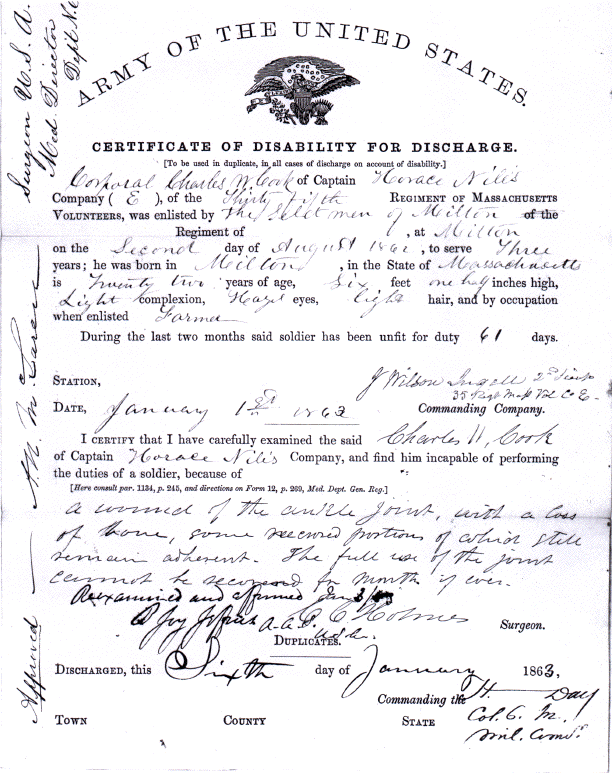 ARMY OF THE UNITED STATES.
CERTIFICATE OF DISABILITY FOR DISCHARGE.
[To be used in duplicate, in all cases of discharge on account of disability.]
Corporal Charles W. Cook of Captain Horace Niles
Company ( E ), of the Thirty fifth REGIMENT OF MASSACHUSETTS
VOLUNTEERS, was enlisted by the Select men of Milton of the
Regiment of , at Milton
on the Second day of August 1862, to serve Three
years; he was born in Milton, in the State of Massachusetts
is Twenty two years of age, Six feet one half inches high,
Light complexion, Hazel eyes, light hair, and by occupation
when enlisted Farmer
During the last two months said soldier has been unfit for duty 61 days.
STATION,
J Wilson Ingell 2nd Lieut
35 Regt Mass Vol Co E
DATE, January 1st 1863 Commanding Company.
I CERTIFY that I have carefully examined the said Charles W. Cook
of Captain Horace Niles Company, and find him incapable of performing
the duties of a soldier, because of
[Here consult par. 1134, p. 245, and directions on Form 12, p. 269, Med. Dept. Gen. Reg.]
a wound of the ankle joint, with a loss
of bone, some portions of which still
remain adherent. The full use of the joint
cannot be recovered for month if ever.
Reexamined and affirmed Jan 3/63
A.A.S. C. C. Holmes Surgeon.
DUPLICATES.
DISCHARGED, this Sixth day of January 1863,
Commanding the Day
Col. 6. Mil. Comd.
TOWN COUNTY STATE
Approved
Surgeon U.S.A.
Med. Director
Dept. N.E.